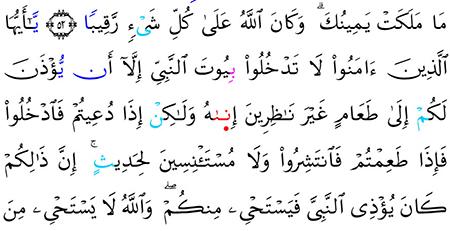 مَا مَلَكَتْ يَمِينُكَ ۗ وَكَانَ ٱللَّهُ عَلَىٰ كُلِّ شَىْءٍ رَّقِيبًا ۝٥٢ يَّـٰٓأَيُّهَا
ٱلَّذِينَ ءَامَنُوا۟ لَا تَدْخُلُوا۟ بِيُوتَ ٱلنَّبِىِّ إِلَّآ أَن يُّؤْذَنَ
لَكُمْ إِلَىٰ طَعَامٍ غَيْرَ نَـٰظِرِينَ إِنَىٰهُ وَلَـٰكِنْ إِذَا دُعِيتُمْ فَٱدْخُلُوا۟
فَإِذَا طَعِمْتُمْ فَٱنتَشِرُوا۟ وَلَا مُسْتَـْٔنِسِينَ لِحَدِيثٍ ۚ إِنَّ ذَٰلِكُمْ
كَانَ يُؤْذِى ٱلنَّبِىَّ فَيَسْتَحْىِۦ مِنكُمْ ۖ وَٱللَّهُ لَا يَسْتَحْىِۦ مِنَ